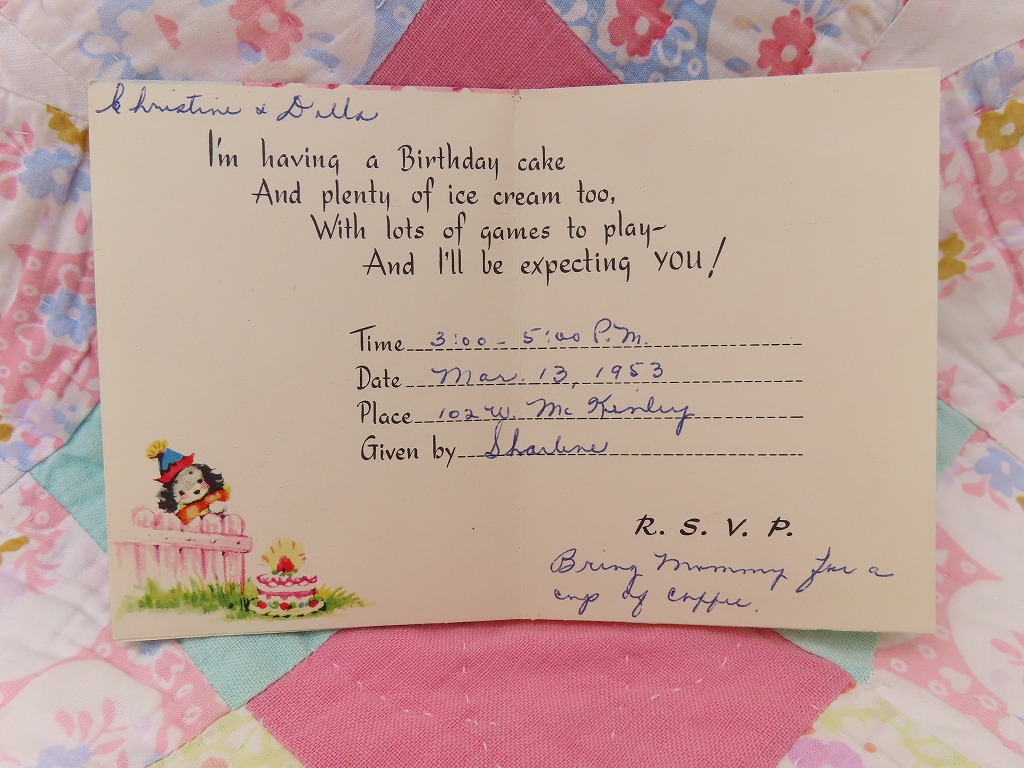 Christine & Della
I'm having a Birthday cake
And plenty of ice cream too,
With lots of games to play–
And I'll be expecting YOU!
Time 3:00 - 5:00 P.M.
Date Mar. 13, 1953
Place 102 W. McKinley
Given by Sharlene
R. S. V. P.
Bring Mommy for a
cup of coffee.